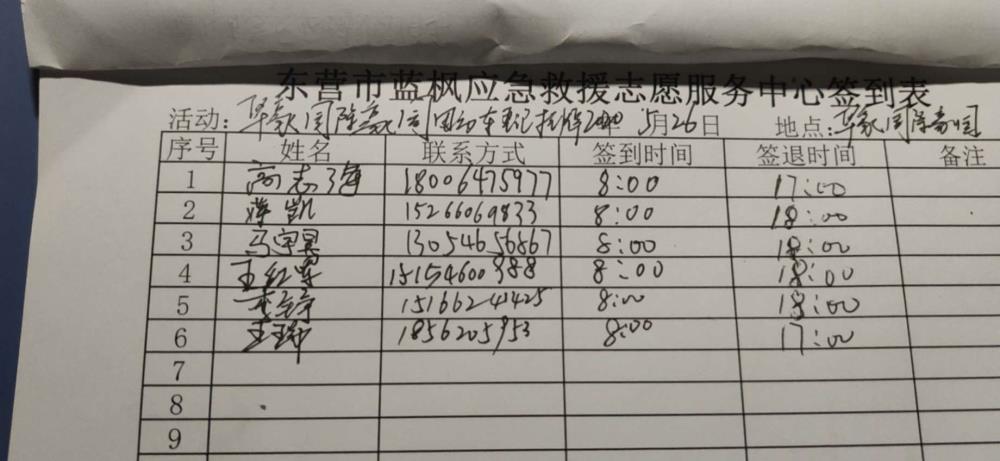 东营市蓝枫应急救援志愿服务中心签到表
活动: 5月26日 地点:
序号 姓名 联系方式 签到时间 签退时间 备注
1 高志海 18006475977 8:00 17:00
2 蒋凯 15266069833 8:00 18:00
3 马宇昊 13054656867 8:00 18:00
4 王红军 15154600388 8:00 18:00
5 15166241425 8:00 18:00
6 1856205953 8:00 17:00
7
8
9